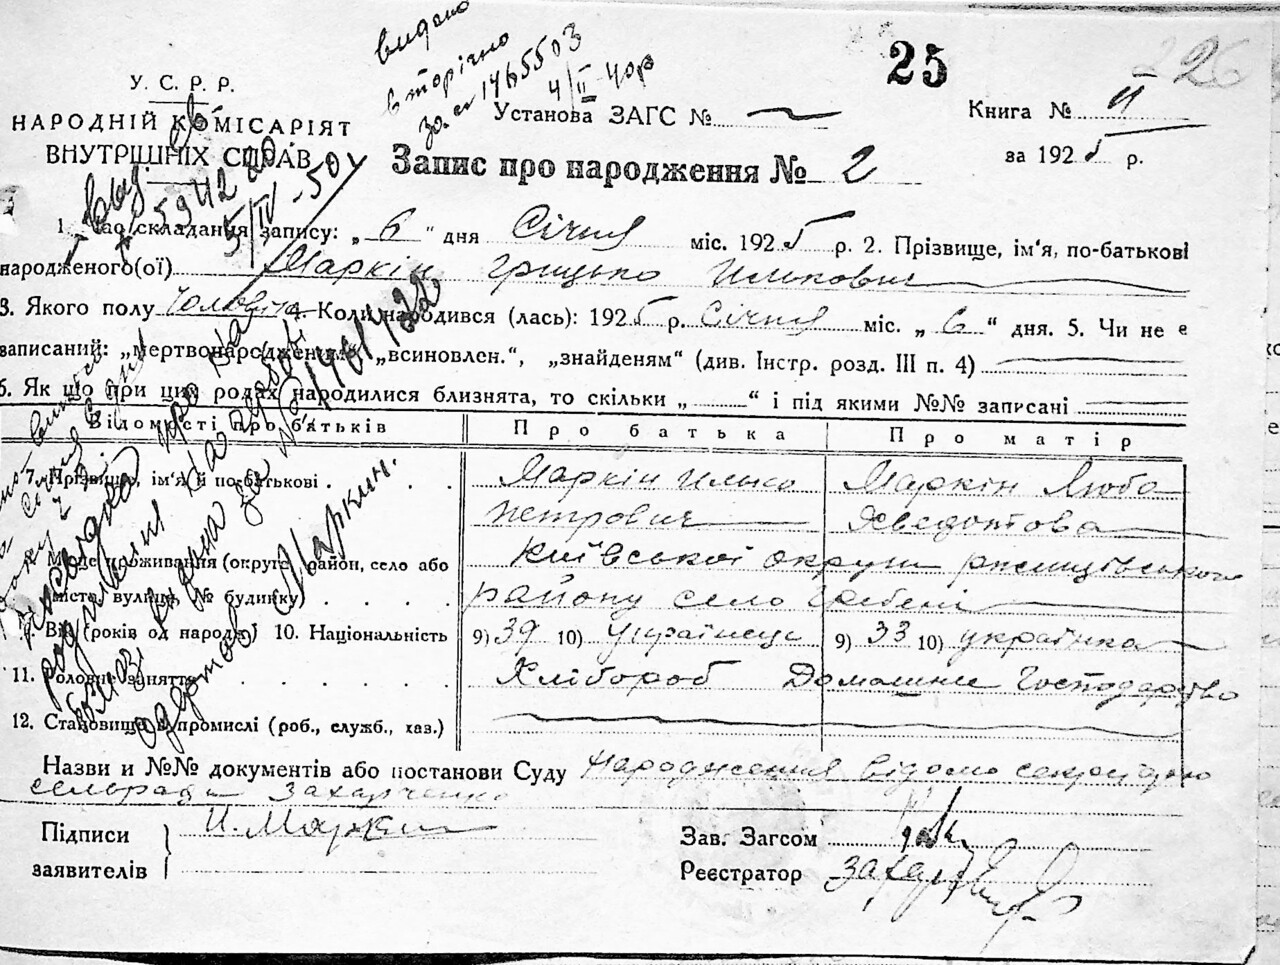 видано
вторічно
за № 1465503
4/II-40р
25
226
У. С. Р. Р.
НАРОДНІЙ КОМІСАРІЯТ
ВНУТРІШНІХ СПРАВ
Установа ЗАГС №
Книга № II
за 1925 р.
Запис про народження № 2
5942
5/IV-50
1. Час складання запису: „ 6 “ дня Січня міс. 1925 р. 2. Прізвище, ім'я, по-батькові
народженого(ої) Маркін Грицько Илькович
3. Якого полу Чоловіча 4. Коли народився (лась): 1925 р. Січня міс. „ 6 “ дня. 5. Чи не є
записаний: „мертвонародженим“ „всиновлен.“, „знайденям“ (див. Інстр. розд. III п. 4)
6. Як що при цих родах народилися близнята, то скільки „ “ і під якими №№ записані
Відомості про батьків Про батька Про матір
7. Прізвище, ім'я й по-батькові Маркін Илько Маркін Люба
Петрович Хведотова
8. Місце проживання (округа, район, село або Київської округи ржищівського
міста, вулиця, № будинку) району село Гребені
9. Вік (років од народж.) 10. Національність 9) 39 10) Українець 9) 33 10) українка
11. Головне заняття Хлібороб Домашнє Господарство
12. Становище в промислі (роб., служб., хаз.)
Назви и №№ документів або постанови Суду Народження відомо секретарю
сельради Захарченко
Підписи И. Маркин
заявителів
Зав. Загсом
Реєстратор
№ 1461422
Маркин.